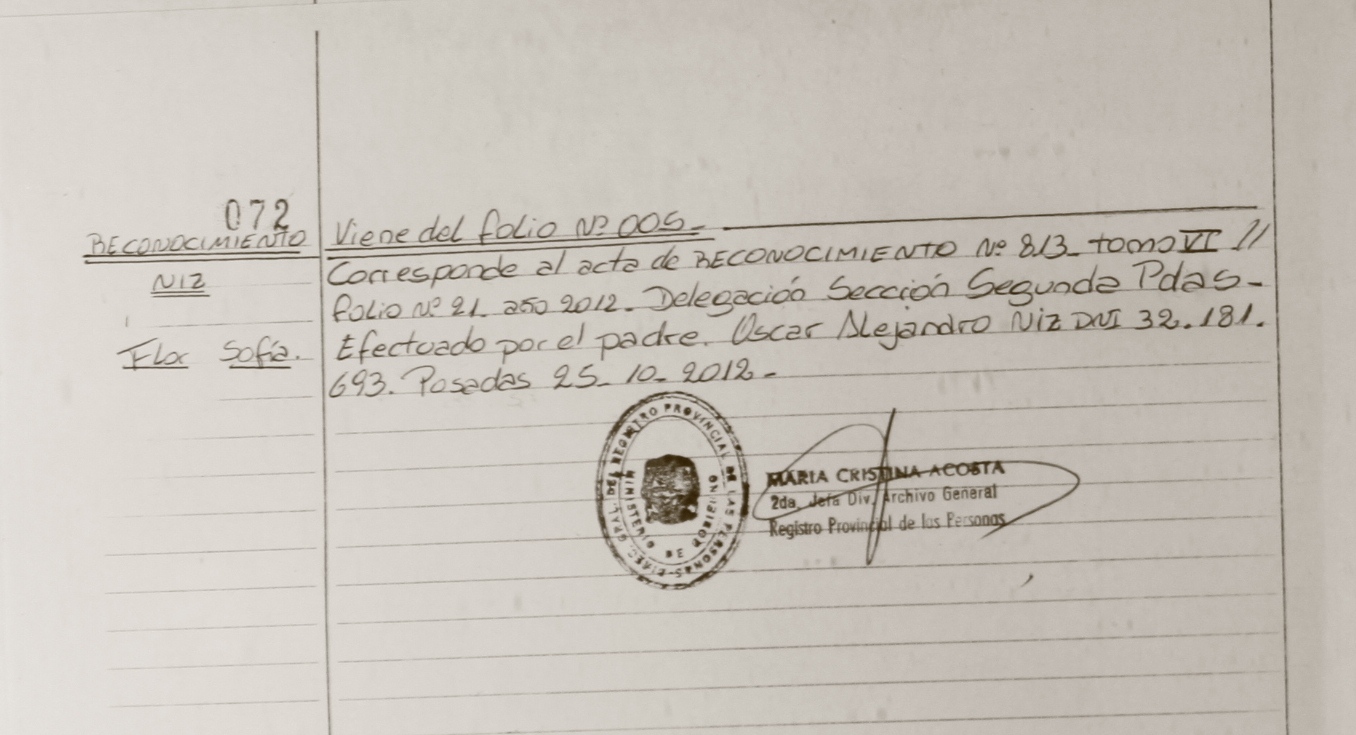 072
RECONOCIMIENTO
NIZ
Flor Sofía.
Viene del folio Nº 005.
Corresponde al acta de RECONOCIMIENTO Nº 813 tomo VI //
folio Nº 21. año 2012. Delegación Sección Segunda Pdas.
Efectuado por el padre. Oscar Alejandro Niz DNI 32.181.
693. Posadas 25-10-2012.-
DIREC. GRAL. DEL REGISTRO PROVINCIAL DE LAS PERSONAS
MINISTERIO DE GOBIERNO
MARIA CRISTINA ACOSTA
2da. Jefa Div. Archivo General
Registro Provincial de las Personas